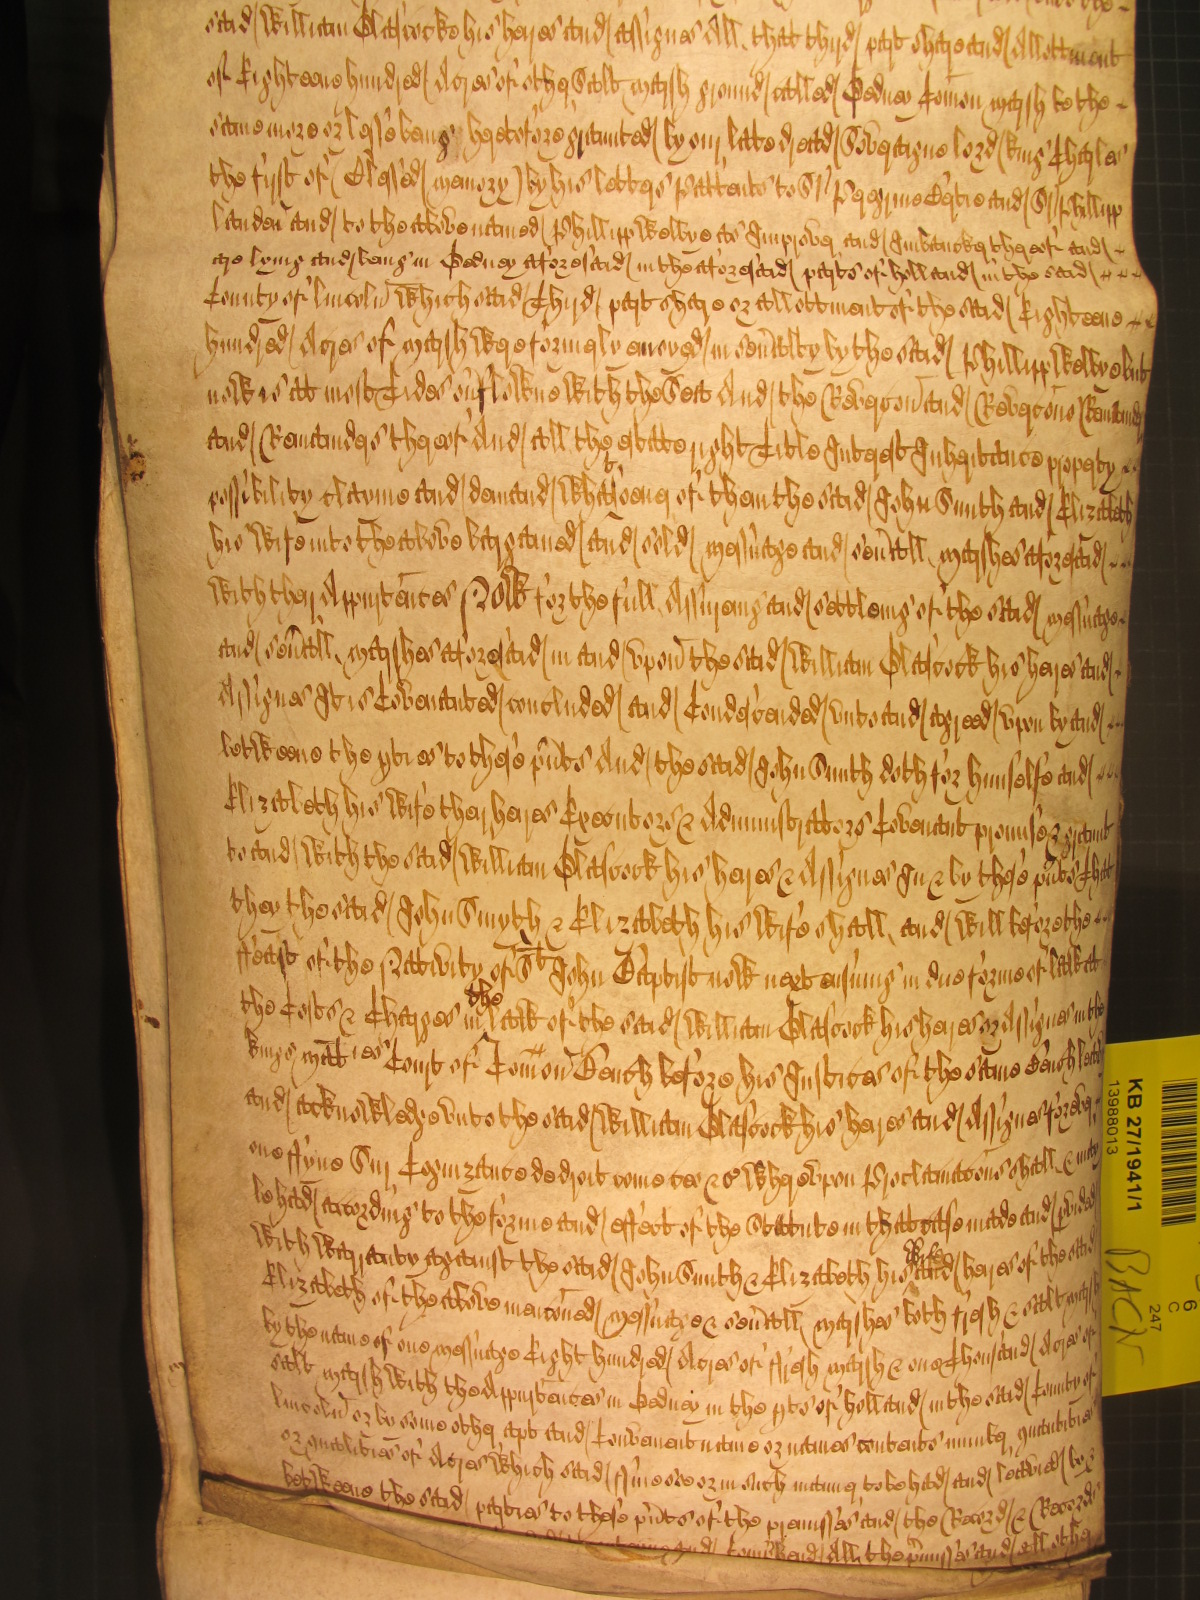 said William Glascocke his heyres and assignes All that third part share and Allottment
of Eighteene hundred Acres of other Salt marsh ground called Gedney Comon marsh be the
same more or lesse being heretofore graunted by our late dread Soveraigne lord king Charles
the first of (Blessed memory) by his letters Pattents to Sr Peregrine Bertie and Sr Phillipp
Landen and to the above named Phillipp Wellbye as Improver and Imbancker thereof and
are lying and being in Gedney aforesaid in the aforesaid parts of holland in the said
County of Lincoln Which said Third part share or allottment of the said Eighteene
hundred Acres of marsh Were formerly enioyed in sevralty by the said Phillipp Welbye but
now is att most Tides ovflowne with the Sea And the Revercon and Revercons Remainder
and Remainders thereof And all the estate right Title Interest Inheritance property
possibility clayme and demand Whatsoever of them the said John Smith and Elizabeth
his Wife into the above bargained and sold messuage and sevall marshes aforesaid
With their Appurtences Now for the full Assureing and setleing of the said messuage
and sevall marshes aforesaid in and upon the said William Glascock his heyres and
Assignes It is Covenanted concluded and Condescended unto and agreed upon by and
betweene the pties to these pnts And the said John Smith doth for himselfe and
Elizabeth his Wife their heyres Executors & Administrators Covenant promise & graunt
to and With the said William Glascock his heyres & Assignes In & by these pnts That
they the said John Smyth & Elizabeth his Wife shall and Will before the
ffeast of the Nativity of St John Baptist now next ensuing in due forme of law att
the Costs & Charges in the law of the said William Glascock his heyres or Assignes in the
kings maties Court of Comon Bench before his Justices of the same Bench levy
and acknowledge unto the said William Glascock his heyres and Assignes for ever
one ffyne Sur Cognizance de droit come ceo &c Whereupon Proclamacons shall & may
be had according to the forme and effect of the Statute in that case made and pvided
With Warranty against the said John Smith & Elizabeth his Wife and heyres of the said
Elizabeth of the above menconed messuage & sevall marshes both fresh & salt marsh
by the name of one messuage Eight hundred Acres of ffresh marsh & one Thousand Acres of
salt marsh With the Appurtences in Gedney in the pts of holland in the said County of
Lincoln or by some other apt and Convenient name or names contents number quantities
or qualities of Acres Which said ffine soe or in such manner to be had and leavied by &
betweene the said parties to these pnts of the premisses and the Record & Records
and Comon all the pmisses and all other
KB 27/1941/1
13988013
247